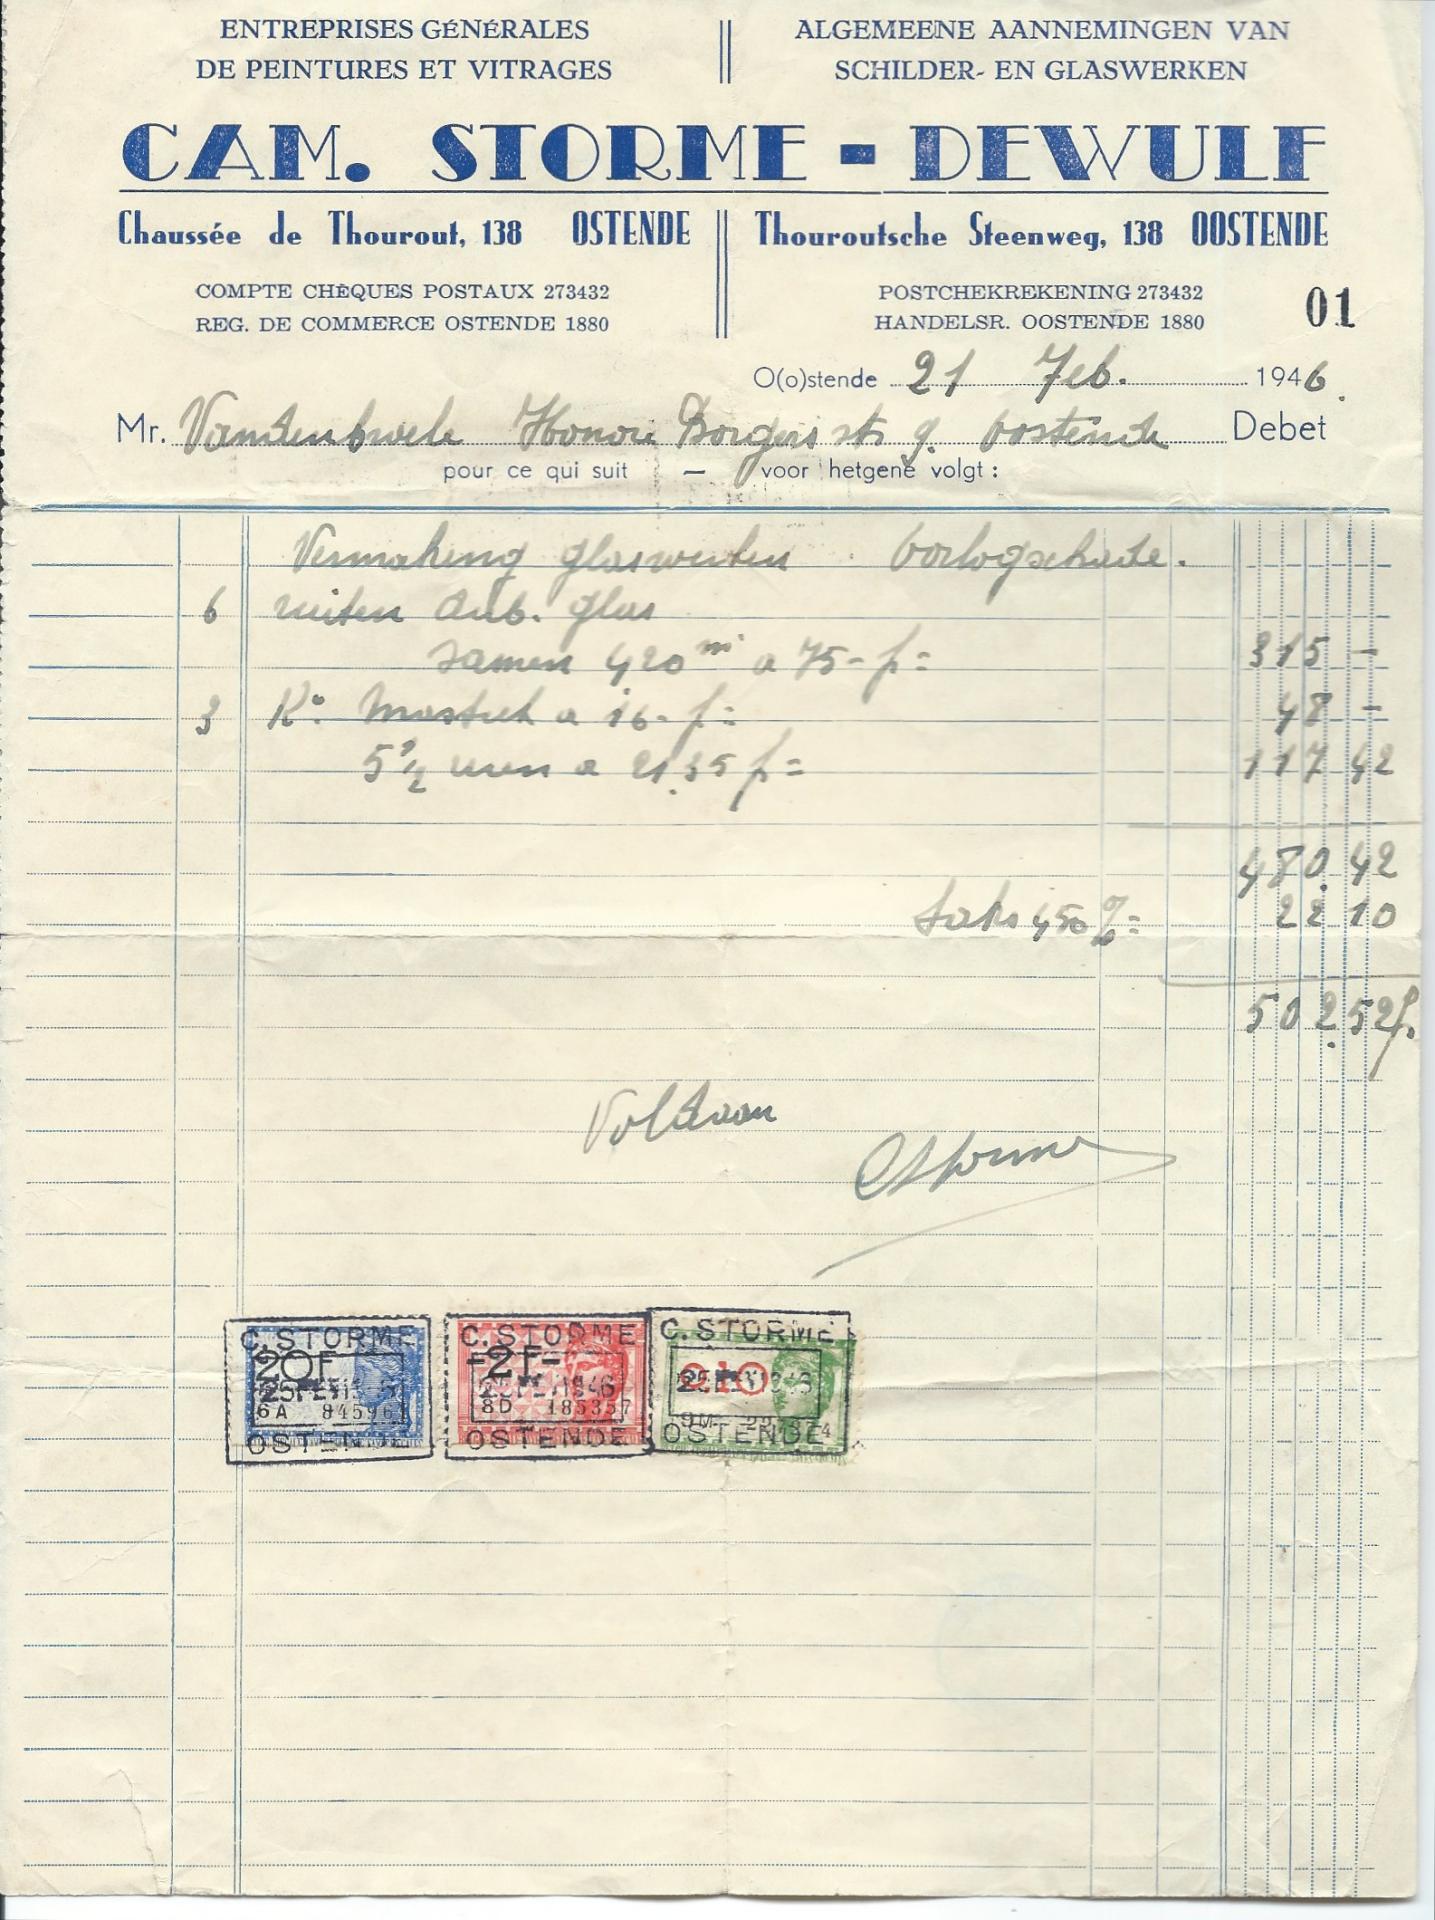 ENTREPRISES GÉNÉRALES
DE PEINTURES ET VITRAGES
ALGEMEENE AANNEMINGEN VAN
SCHILDER- EN GLASWERKEN
CAM. STORME - DEWULF
Chaussée de Thourout, 138 OSTENDE
Thouroutsche Steenweg, 138 OOSTENDE
COMPTE CHÈQUES POSTAUX 273432
REG. DE COMMERCE OSTENDE 1880
POSTCHEKREKENING 273432
HANDELSR. OOSTENDE 1880
01
O(o)stende 21 Feb. 1946.
Mr. Honoré str 9. Oostende Debet
pour ce qui suit — voor hetgene volgt :
Vermaking glaswerken . Oorlogschade.
6 ruiten dub. glas
samen 420 m a 75-f= 315 -
3 Ko. Mastiek a 16-f= 48 -
5 1/2 uren a 21.35 f= 117 42
480.42
Taks 450 %= 22 10
502.52 f.
Voldaan
CStorme
C. STORME
20F
25 FEV 1946
6A 845961
OSTENDE
C. STORME
-2F-
25 FEV 1946
8D 185357
OSTENDE
C. STORME
0.10
25 FEV 1946
OSTENDE